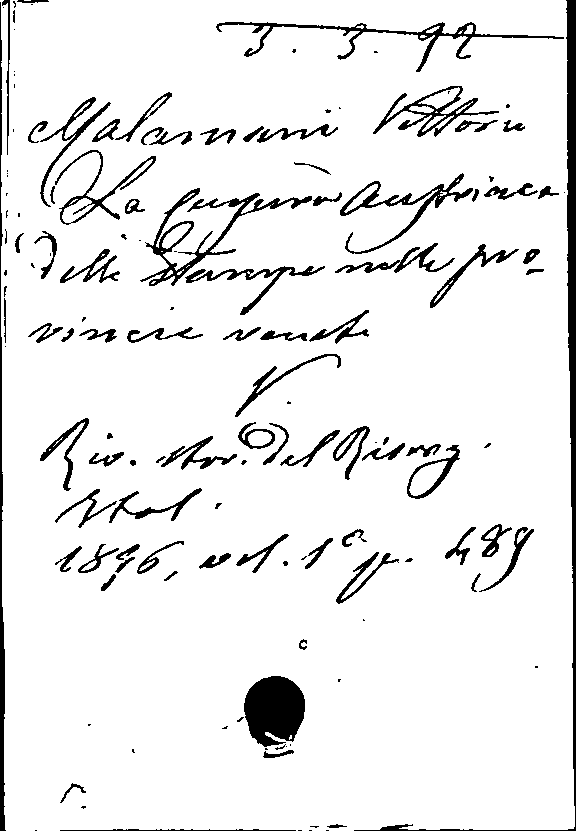 3. 3. 92
Malamani Vittorio
La censura Austriaca
della stampa nelle pro-
vincie venete
V.
Riv. stor. del Risorg.
Ital.
1896, vol. 1° p. 489